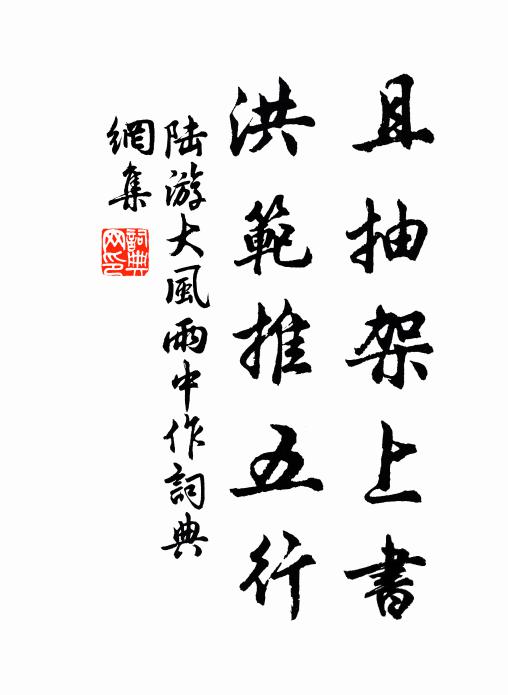 且抽架上書
洪範推五行
陆游大風雨中作詞典
網集
詞典網印